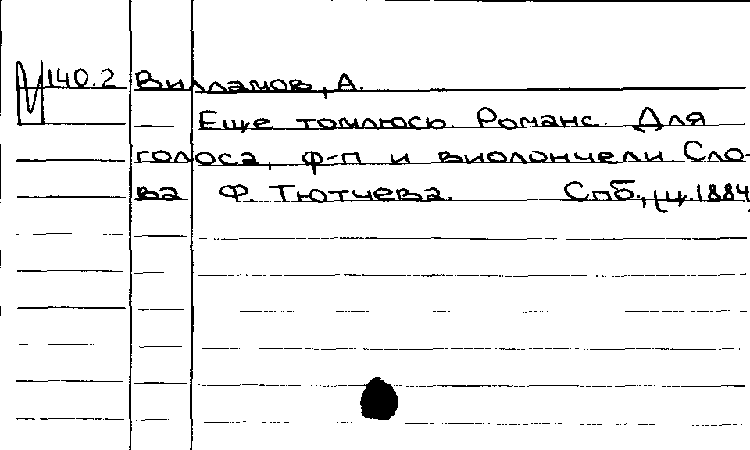 140.2 Вилламов, А.
Еще томлюсь. Романс. Для
голоса, ф-п и виолончели. Сло-
ва Ф. Тютчева. Спб., ц.1884